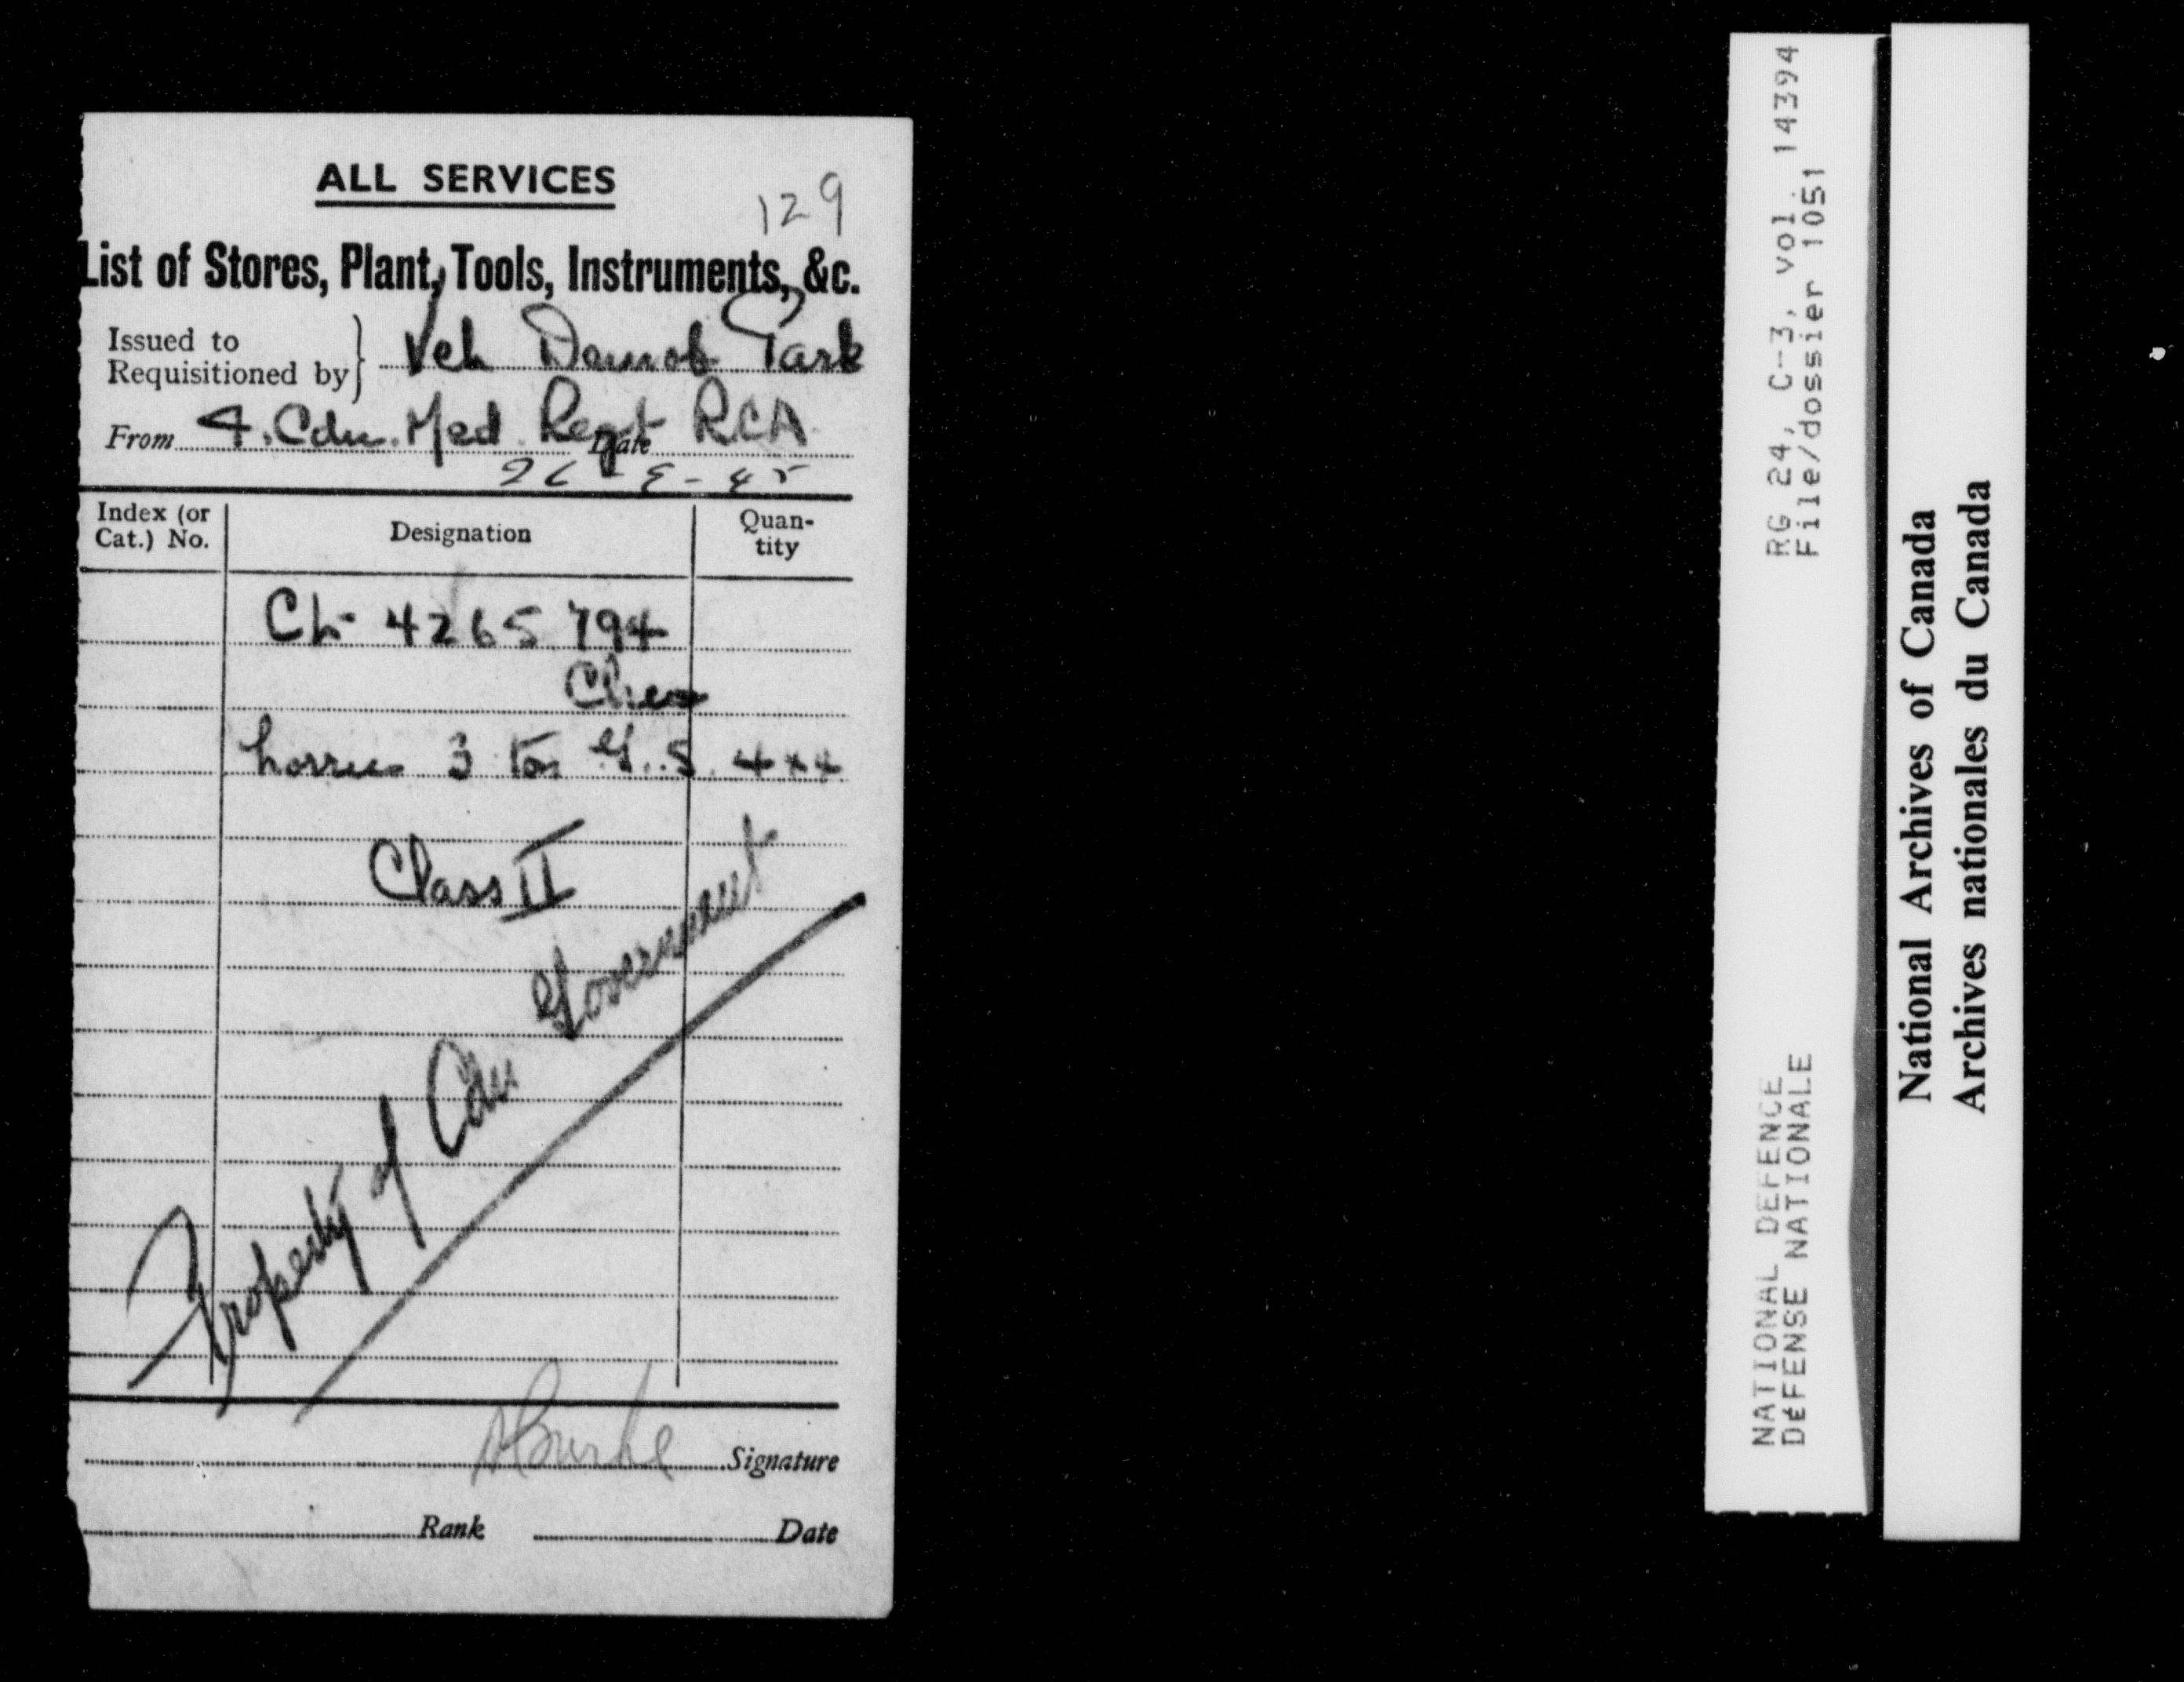 ALL SERVICES
129
List of Stores, Plant, Tools, Instruments, &c.
Issued to
Requisitioned by } Veh Demob Park
From 4. Cdn. Med Regt RCA Date
Index (or Cat.) No. Designation Quan-tity
4265794
Chev
3 Ton G.S. 4x4
Class II
Property of Cdn Government
Burke Signature
Rank Date
RG 24, C-3, vol. 14394
File/dossier 1051
NATIONAL DEFENCE
DÉFENSE NATIONALE
National Archives of Canada
Archives nationales du Canada